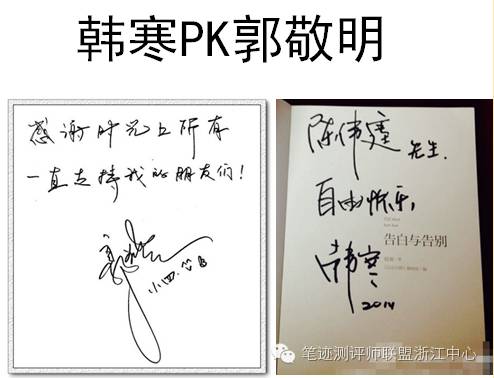 韩寒PK郭敬明
感谢时光上所有
一直支持我的朋友们!
郭敬明
小四
陈伟霆 先生.
自由快乐,
告白与告别
韩寒
2014
笔迹测评师联盟浙江中心